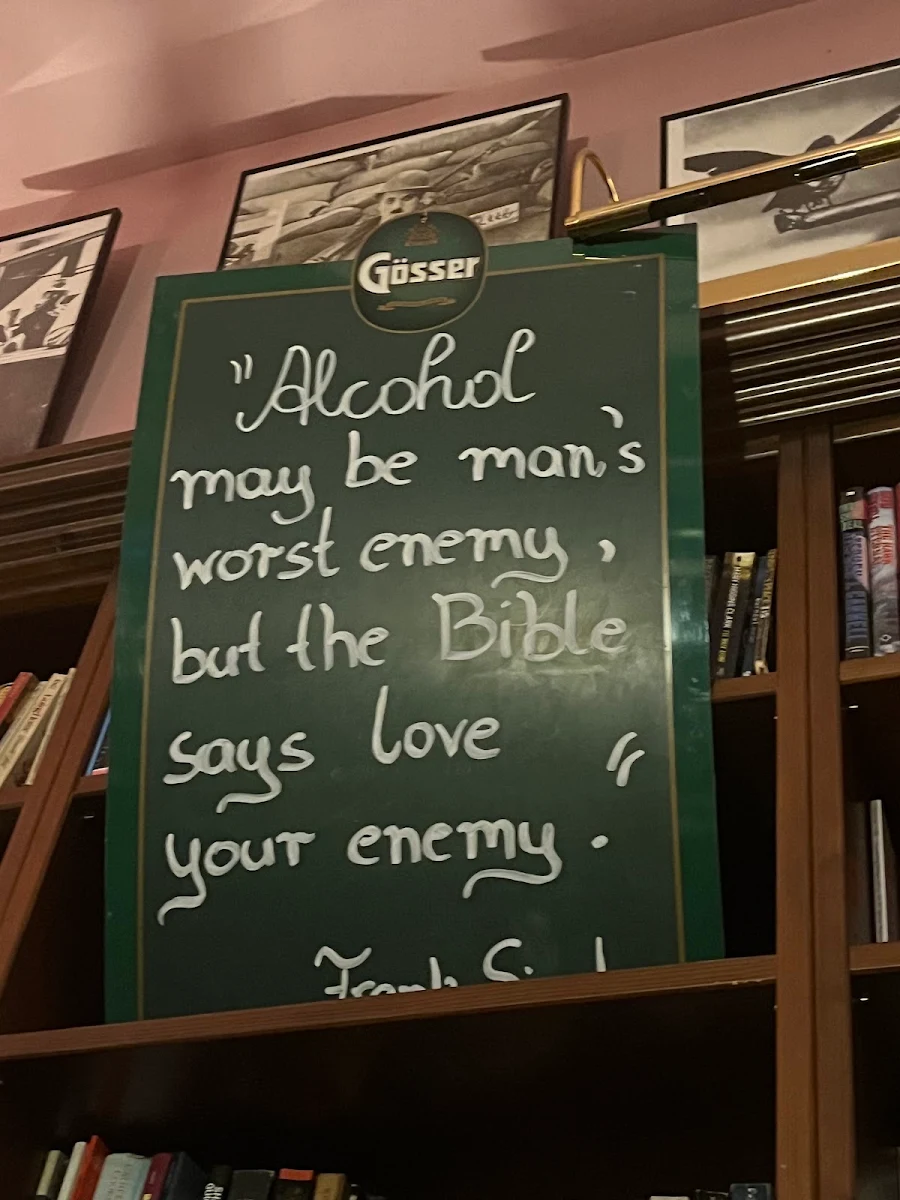 Gösser
"Alcohol
may be man's
worst enemy,
but the Bible
says love
your enemy."
Frank